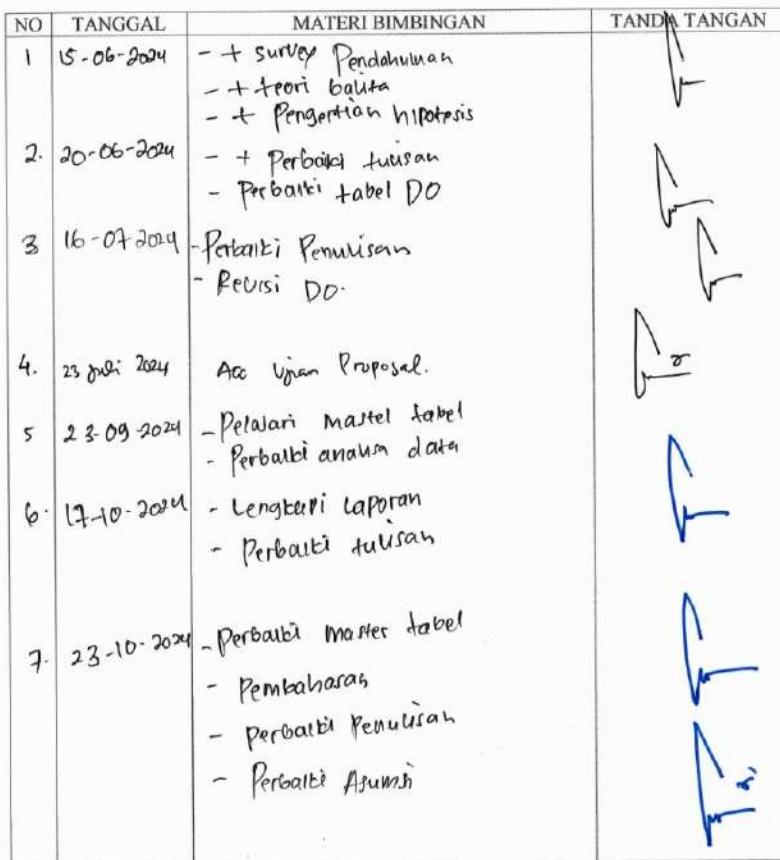 NO TANGGAL MATERI BIMBINGAN TANDA TANGAN
1 15-06-2024 - + survey Pendahuluan
- + teori balita
- + Pengertian hipotesis
2. 20-06-2024 - + Perbaiki tulisan
- Perbaiki tabel DO
3 16-07-2024 - Perbaiki Penulisan
- Revisi DO.
4. 23 Juli 2024 Acc Ujian Proposal.
5 23-09-2024 - Pelajari mastel tabel
- Perbaiki analisa data
6. 17-10-2024 - Lengkapi laporan
- Perbaiki tulisan
7. 23-10-2024 - Perbaiki Master tabel
- Pembahasan
- Perbaiki Penulisan
- Perbaiki Asumsi